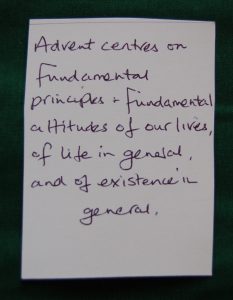 Advent centres on
fundamental
principles + fundamental
attitudes of our lives,
of life in general,
and of existence in
general.